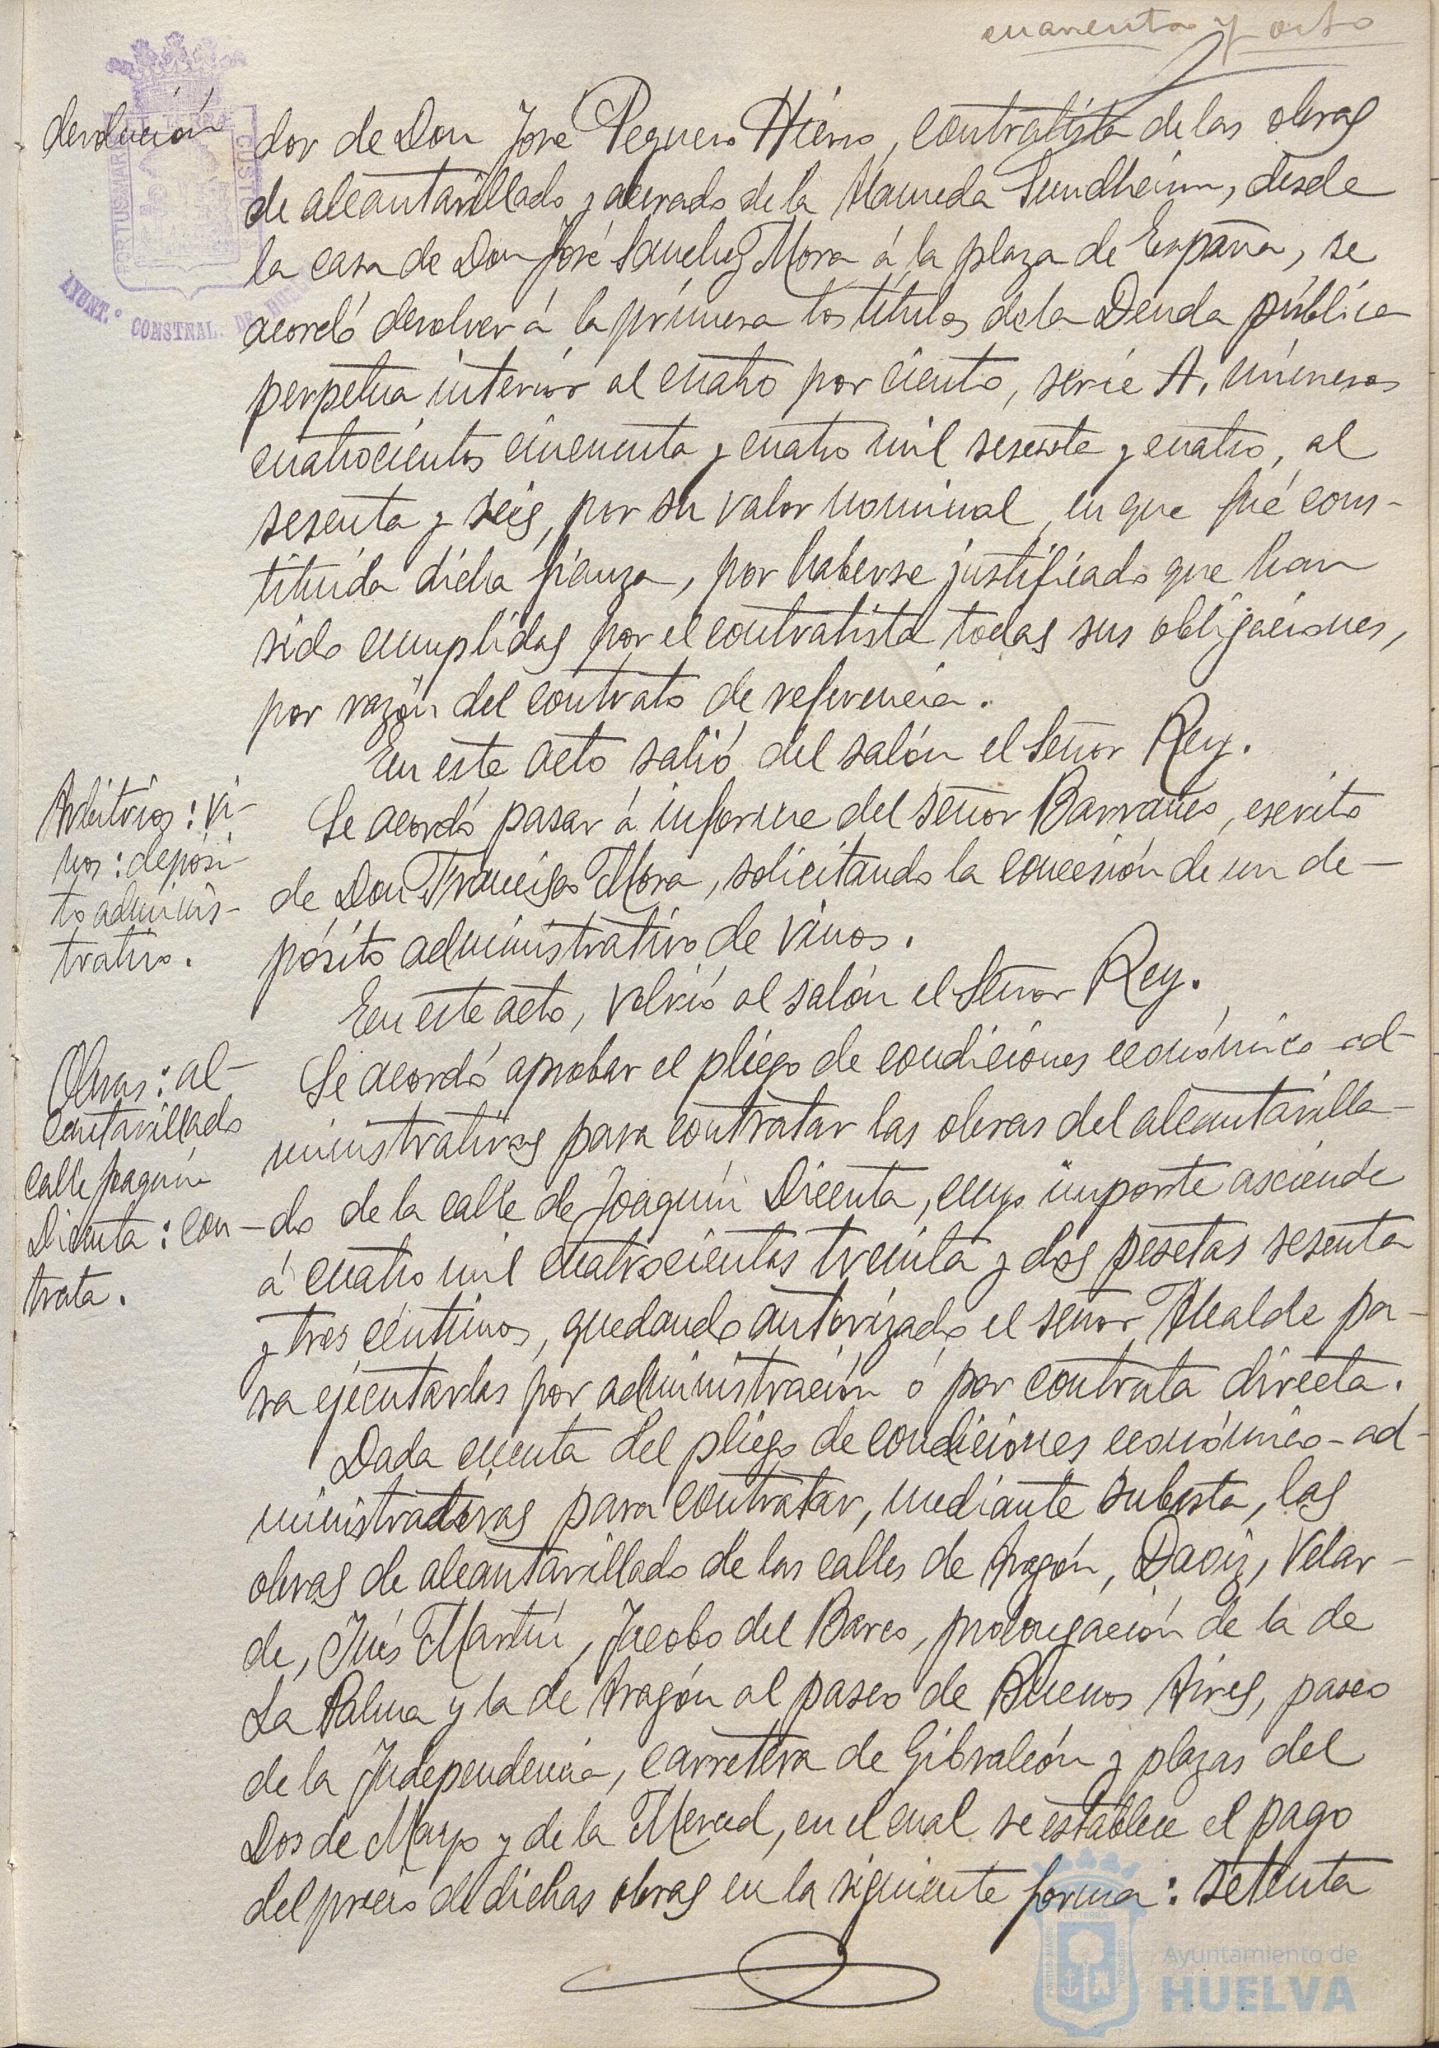 cuarenta y ocho
devolución
dor de Don José Peguero Hierro, contratista de las obras
de alcantarillado y acerado de la Alameda Sundheim, desde
la casa de Don José Sanchez Mora á la plaza de España, se
acordó devolver á la primera los títulos de la Deuda pública
perpetua interior al cuatro por ciento, serie A, números
cuatrocientos cincuenta y cuatro mil sesenta y cuatro, al
sesenta y seis, por su valor nominal, en que fué cons-
tituida dicha fianza, por haberse justificado que han
sido cumplidas por el contratista todas sus obligaciones,
por razón del contrato de referencia.
En este acto salió del salón el Señor Rey.
Arbitrios: vi-
nos: depósi-
to adminis-
trativo.
Se acordó pasar á informe del señor Barranco, escrito
de Don Francisco Mora, solicitando la concesión de un de-
pósito administrativo de vinos.
En este acto, volvió al salón el Señor Rey.
Obras: al-
cantarillado
calle Joaquín
Dicenta: con-
trata.
Se acordó aprobar el pliego de condiciones económico-ad-
ministrativas para contratar las obras del alcantarilla-
do de la calle de Joaquín Dicenta, cuyo importe asciende
á cuatro mil cuatrocientas treinta y dos pesetas sesenta
y tres céntimos, quedando autorizado el señor Alcalde pa-
ra ejecutarlas por administración ó por contrata directa.
Dada cuenta del pliego de condiciones económico-ad-
ministrativas para contratar, mediante subasta, las
obras de alcantarillado de las calles de Aragón, Daoiz, Velar-
de, Inés Martín, Jacobo del Barco, prolongación de la de
La Palma y la de Aragón al paseo de Buenos Aires, paseo
de la Independencia, carretera de Gibraleón y plazas del
Dos de Mayo y de la Merced, en el cual se establece el pago
del precio de dichas obras en la siguiente forma: setenta
AYUNT.º CONSTNAL. DE
PORTUS MARIS ET TERRÆ CUSTODIA
Ayuntamiento de
HUELVA